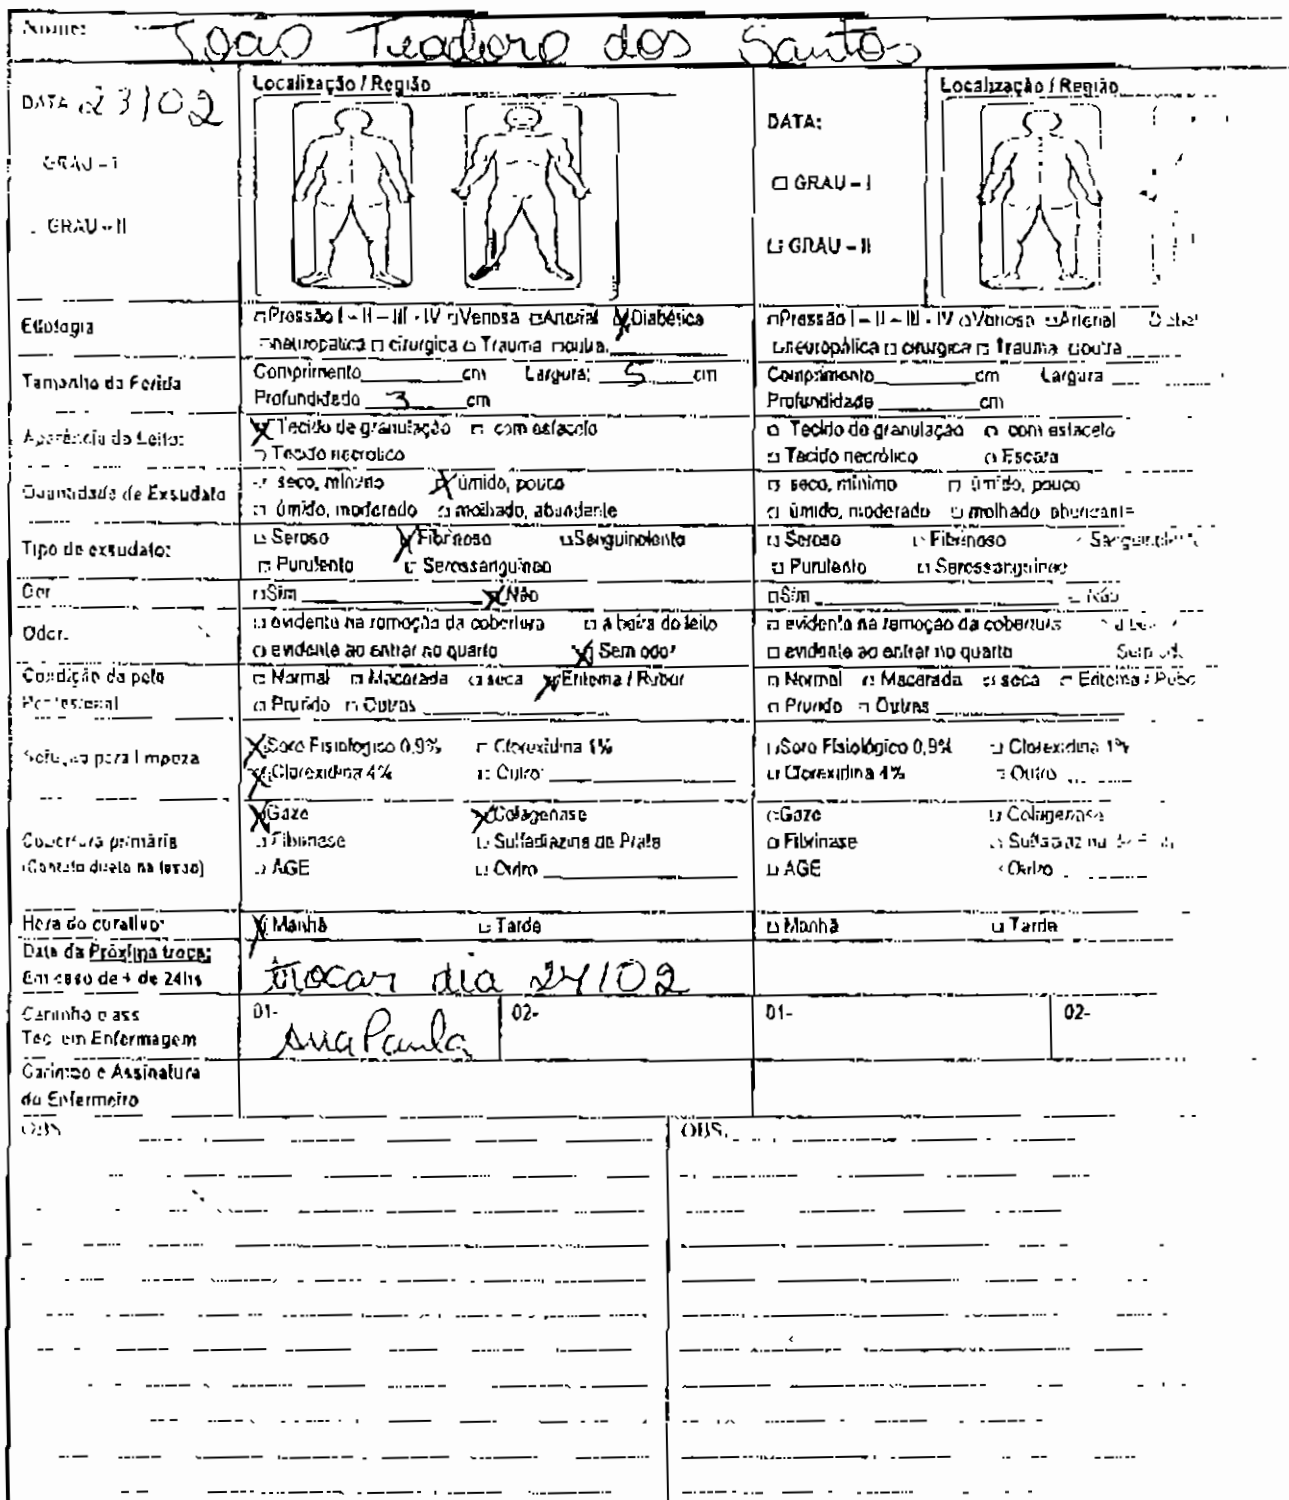 Nome: João Teodoro dos Santos
DATA 23/02
Localização / Região
DATA:
Localização / Região
GRAU – I
□ GRAU – I
GRAU – II
□ GRAU – II
Etiologia
□Pressão I – II – III - IV □Venosa □Arterial ☒Diabética
□neuropática □ cirurgica □ Trauma □outra:
□Pressão I – II – III - IV □Venosa □Arterial
□neuropática □ cirurgica □ trauma □outra
Tamanho da Ferida
Comprimento________cm Largura: 5 cm
Profundidade 3 cm
Comprimento________cm Largura
Profundidade ________cm
Aparência do Leito:
☒ Tecido de granulação □ com esfacelo
□ Tecido necrótico
□ Tecido de granulação □ com esfacelo
□ Tecido necrótico □ Escara
Quantidade de Exsudato
□ seco, mínimo ☒ úmido, pouco
□ úmido, moderado □ molhado, abundante
□ seco, mínimo □ úmido, pouco
□ úmido, moderado □ molhado abundante
Tipo de exsudato:
□ Seroso ☒ Fibrinoso □Sanguinolento
□ Purulento □ Serossanguíneo
□ Seroso □ Fibrinoso
□ Purulento □ Serossanguíneo
Dor
□Sim ________ ☒ Não
□Sim ________ □ Não
Odor:
□ evidente na remoção da cobertura □ a beira do leito
□ evidente ao entrar no quarto ☒ Sem odor
□ evidente na remoção da cobertura
□ evidente ao entrar no quarto
Condição da pele
□ Normal □ Macerada □ seca ☒ Eritema / Rubor
□ Prurido □ Outras ________
□ Normal □ Macerada □ seca □ Eritema / Rubo
□ Prurido □ Outras ________
Solução para limpeza
☒ Soro Fisiológico 0,9% □ Clorexidina 1%
☒ Clorexidina 4% □ Outro: ________
□Soro Fisiológico 0,9% □ Clorexidina 1%
□ Clorexidina 4% □ Outro
Cobertura primária
(Contato direto na lesão)
☒ Gaze ☒ Colagenase
□ Fibrinase □ Sulfadiazina de Prata
□ AGE □ Outro ________
□Gaze □ Colagenase
□ Fibrinase
□ AGE □ Outro
Hora do curativo:
☒ Manhã □ Tarde
□ Manhã □ Tarde
Data da Próxima troca:
Em caso de + de 24hs
trocar dia 24/02
Carimbo e ass
Tec. em Enfermagem
01- Ana Paula
02-
01-
02-
Carimbo e Assinatura
do Enfermeiro
OBS
OBS.